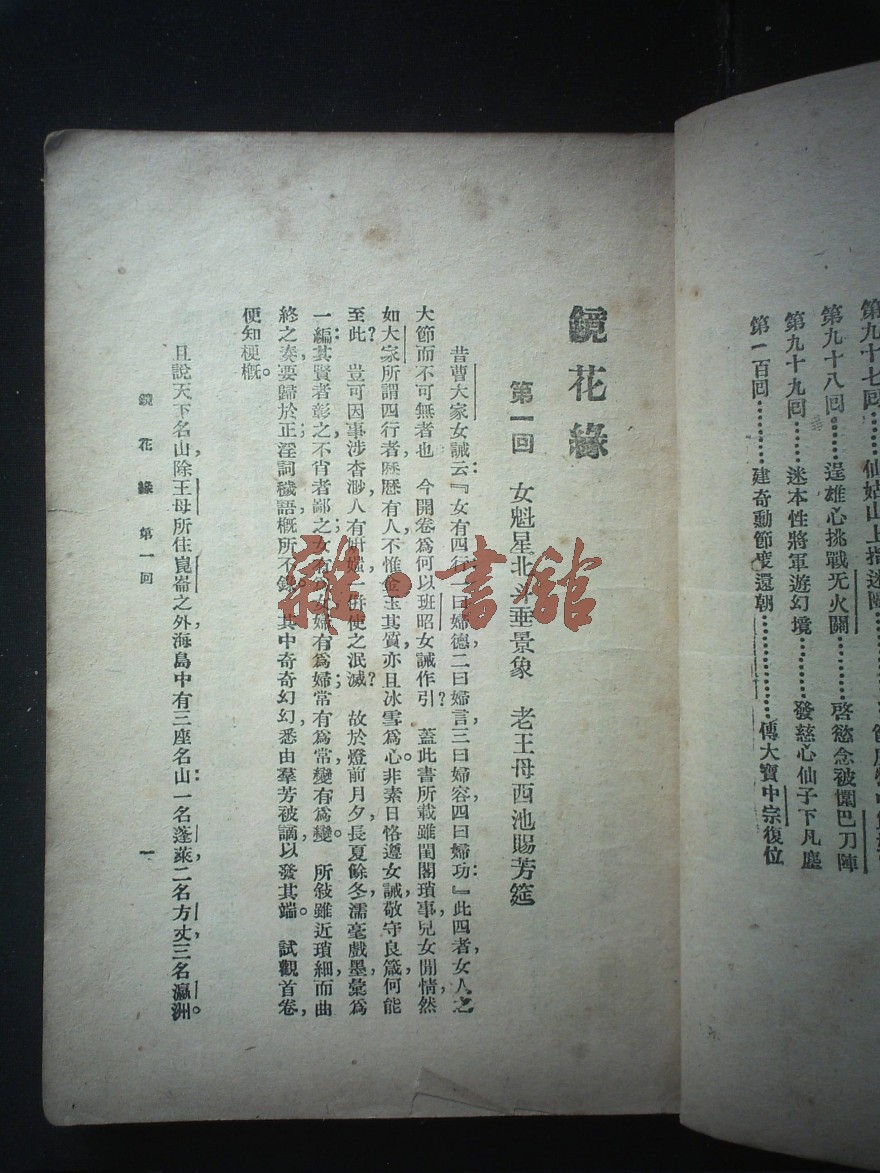 第九十七回……仙姑山上指迷
第九十八回……逞雄心挑戰无火關…………啓慾念被圍巴刀陣
第九十九回……迷本性將軍遊幻境……發慈心仙子下凡塵
第一百回…………建奇勳節度還朝……………傳大寶中宗復位
鏡花緣
第一回 女魁星北斗垂景象 老王母西池賜芳筵
昔曹大家女誡云:『女有四行:一曰婦德,二曰婦言,三曰婦容,四曰婦功』:此四者,女人之
大節而不可無者也,今開卷爲何以班昭女誡作引?蓋此書所載雖閨閣瑣事,兒女閒情,然
如大家所謂四行者,歷歷有人,不惟金玉其質,亦且冰雪爲心。非素日恪遵女誡,敬守良箴,何能
至此?豈可因事涉杳渺,人有妍媸,一併使之泯滅?故於燈前月夕,長夏餘冬,濡毫戲墨,彙爲
一編:其賢者彰之,不肖者鄙之;女有爲女,婦有爲婦;常有爲常,變有爲變。所敍雖近瑣細,而曲
終之奏,要歸於正,淫詞穢語,概所不錄。其中奇奇幻幻,悉由羣芳被謫,以發其端。試觀首卷,
便知梗概。
且說天下名山,除王母所住崑崙之外,海島中有三座名山:一名蓬萊,二名方丈,三名瀛洲。
鏡花緣 第一回
一
雜·書館